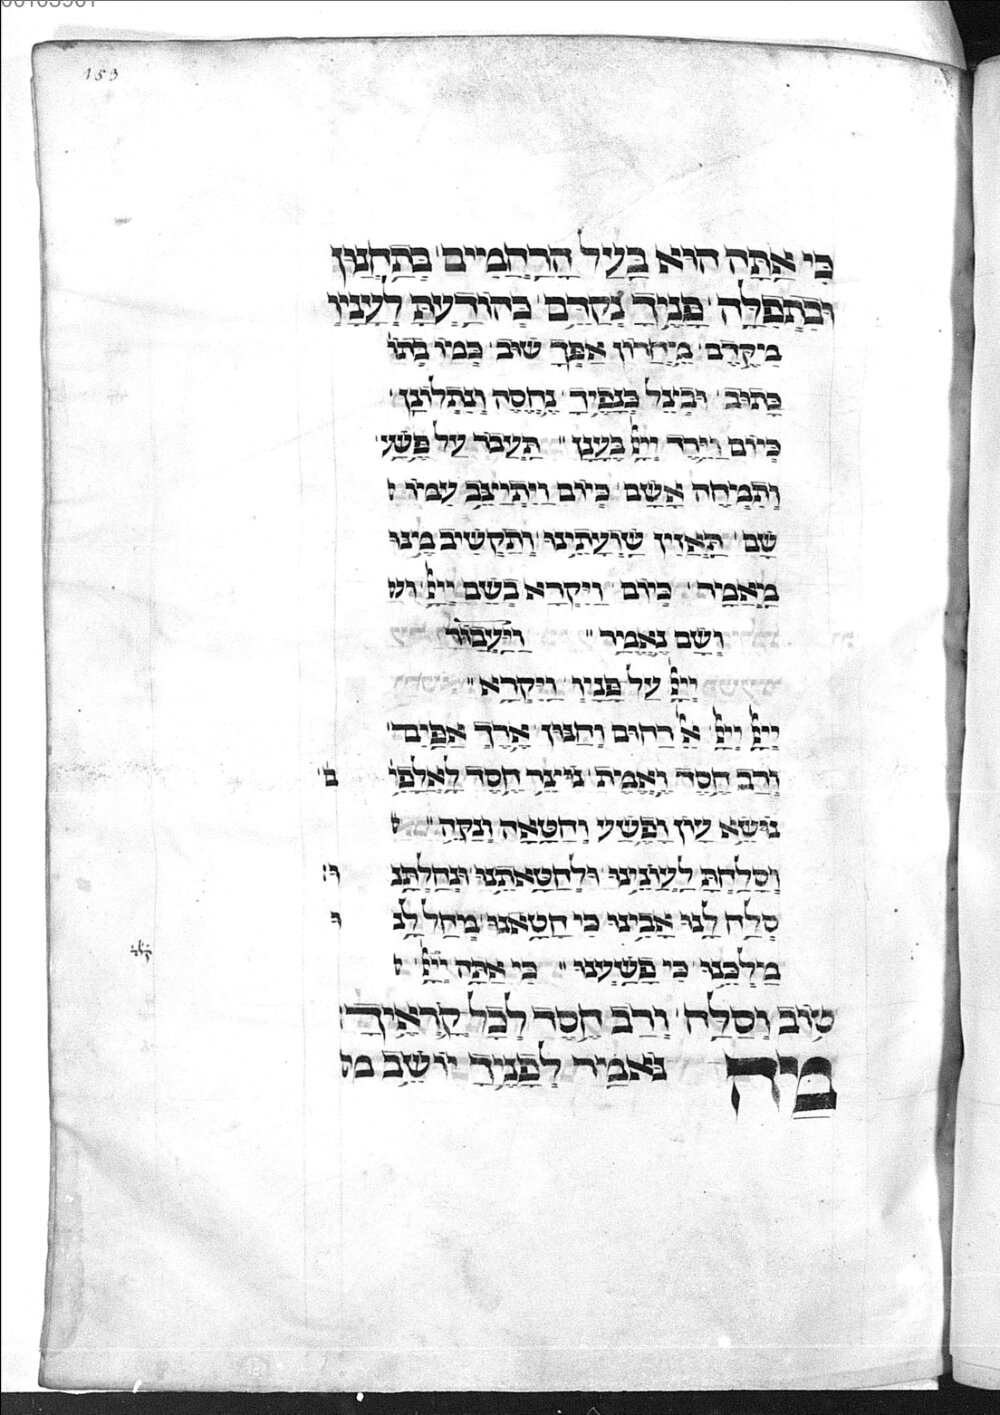 153
כִּי אַתָּה הוּא בַּעַל הָרַחֲמִיים׳ בְּתַחֲנוּן
וּבִתְפִלָּה׳ פָּנֶיךָ נְקַדֵּם׳ כְּהוֹדַעְתָּ לֶעָנָיו
מִיקֶּדֶם׳ מֵיחֲרוֹן אַפְּךָ שׁוּב׳ כְּמוֹ בְּתוֹ
כָּתוּב׳ וּבְצֵל כְּנָפֶיךָ נֶחֱסֶה וְנִתְלוֹנָן׳
כְּיוֹם וַיֵּרֶד יְיָ בֶּעָנָן׳׳ תַּעֲבֹר עַל פֶּשַׁע׳
וְתִמְחֶה אָשָׁם׳ כְּיוֹם וַיִּתְיַצֵּב עִמּוֹ
שָׁם׳ תַּאֲזִין שַׁוְעָתֵינוּ וְתַקְשִׁיב מֶנּוּ
מַאֲמָר׳ כְּיוֹם׳ וַיִּקְרָא בְשֵׁם יְיָ׳ וש
וְשָׁם נֶאֱמַר׳׳ וַיַּעֲבוֹר
יְיָ עַל פָּנָיו׳ וַיִּקְרָא׳׳
יְיָ יְיָ׳ אֵל רַחוּם וְחַנּוּן׳ אֶרֶךְ אַפַּיִם׳
וְרַב חֶסֶד׳ וֶאֱמֶת׳ נוֹצֵר חֶסֶד לָאֲלָפִי ם׳
נוֹשֵׂא עָוֹן וָפֶשַׁע וְחַטָּאָה וְנַקֵּה׳׳
וְסָלַחְתָּ לַעֲוֹנֵינוּ׳ וּלְחַטָּאתֵנוּ וּנְחַלְתָּנ וּ׃
סְלַח לָנוּ אָבִינוּ כִּי חָטָאנוּ מְחַל לָנ וּ
מַלְכֵּנוּ כִּי פָשָׁעְנוּ׳׳ כִּי אַתָּה יְיָ׳
טוֹב וְסַלָּח׳ וְרַב חֶסֶד לְכָל קֹרְאֶיךָ׃
מַה נֹּאמַר לְפָנֶיךָ יוֹשֵׁב מ